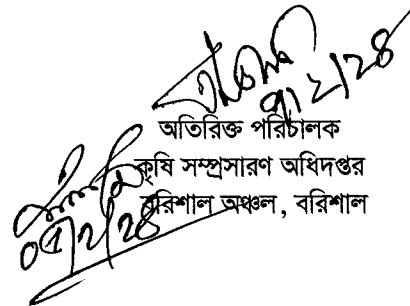 ৭/২/২৪
অতিরিক্ত পরিচালক
কৃষি সম্প্রসারণ অধিদপ্তর
বরিশাল অঞ্চল, বরিশাল
০৭/২/২৪